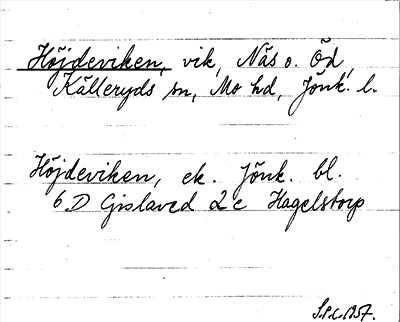 Höjdeviken, vik, Näs o. Öd,
Källeryds sn, Mo hd, Jönk. l.
Höjdeviken, ek. Jönk. bl.
6 D Gislaved 2 c Hagelstorp
1957.